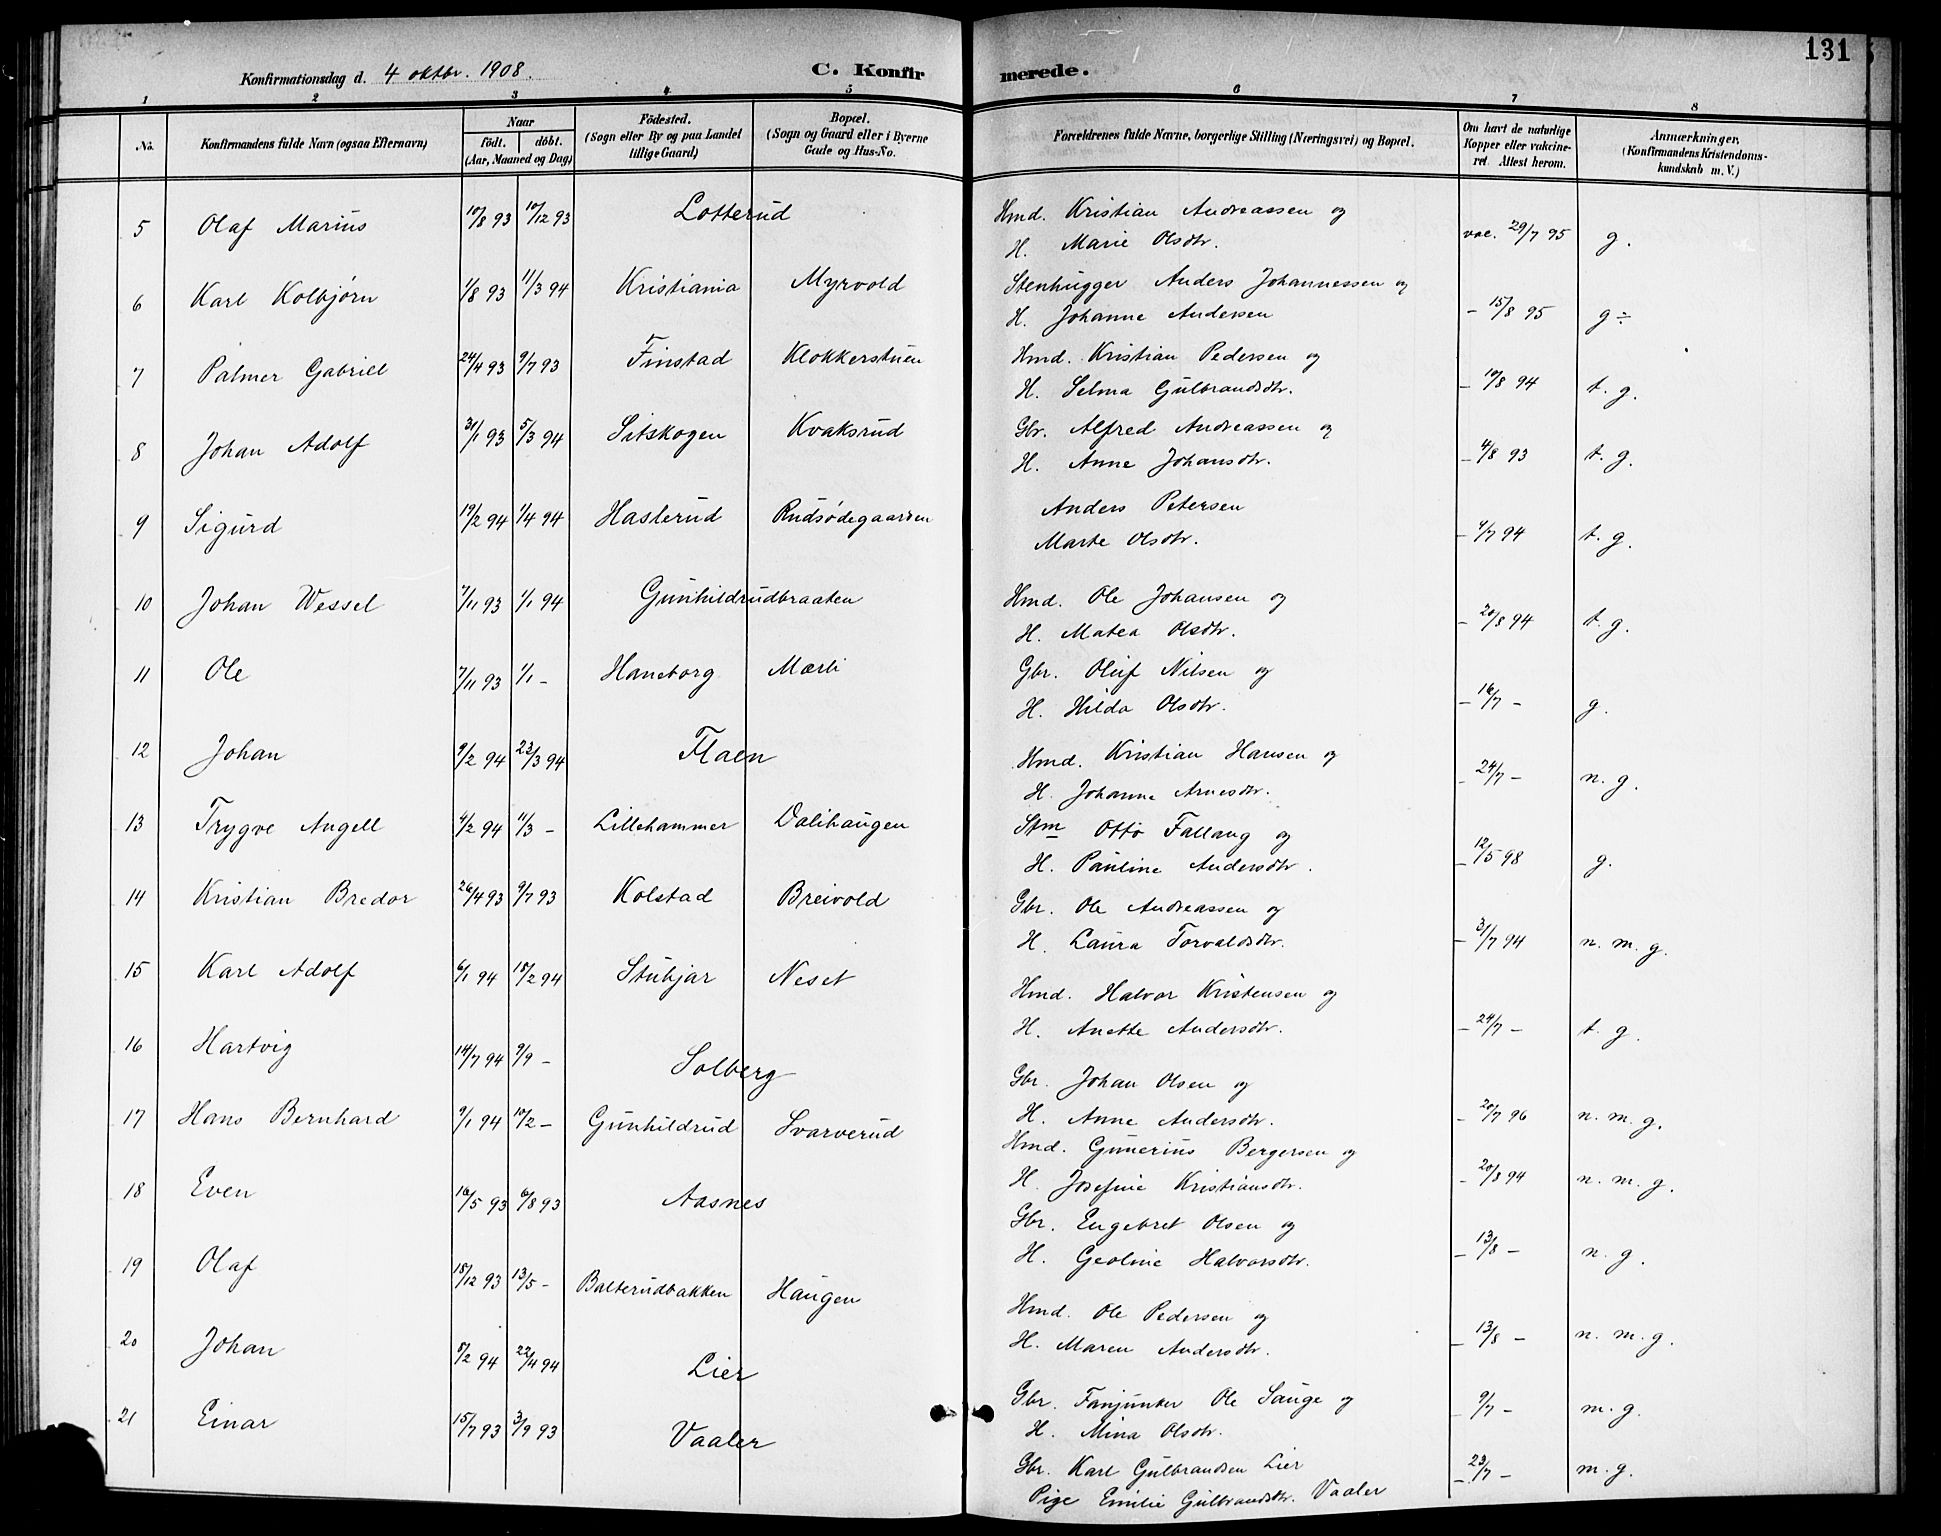 131
Konfirmationsdag d. 4 oktbr. 1908. C. Konfirmerede.
1 2 3 4 5 6 7 8
No. Konfirmandens fulde Navn (ogsaa Efternavn) Naar födt. döbt. (Aar, Maaned og Dag) Födested. (Sogn eller By og paa Landet tillige Gaard) Bopæl. (Sogn og Gaard eller i Byerne Gade og Hus-No. Forældrenes fulde Navne, borgerlige Stilling (Næringsvei) og Bopæl. Om havt de naturlige Kopper eller vakcineret Attest herom. Anmærkninger, (Konfirmandens Kristendomskundskab m. V.)
5 Olaf Marius 10/8 93 10/12 93 Lotterud Hmd. Kristian Andreassen og
H. Marie Olsdtr. vac. 29/7 95 g.
6 Karl Kolbjørn 1/8 93 11/3 94 Kristiania Myrvold Stenhugger Anders Johannessen og
H. Johanne Andersen – 15/8 95 g ÷
7 Palmer Gabriel 24/4 93 9/7 93 Finstad Klokkerstuen Hmd. Kristian Pedersen og
H. Selma Gulbrandsdtr. – 10/8 94 t. g.
8 Johan Adolf 31/1 93 5/3 94 Sitskogen Kvaksrud Gbr. Alfred Andreassen og
H. Anne Johansdtr. – 4/8 93 t. g.
9 Sigurd 19/2 94 1/4 94 Hasterud Rudsødegaarden Anders Petersen
Marte Olsdtr. – 9/7 94 t. g.
10 Johan Wessel 7/11 93 1/1 94 Gunhildrudbraaten Hmd. Ole Johansen og
H. Matea Olsdtr. – 20/8 94 t. g.
11 Ole 7/11 93 1/1 – Haneborg Mærli Gbr. Oluf Nilsen og
H. Hilda Olsdtr. – 16/7 – g.
12 Johan 9/2 94 23/3 94 Flaen Hmd. Kristian Hansen og
H. Johanne Arnesdtr. – 24/7 – n. g.
13 Trygve Angell 4/2 94 11/3 – Lillehammer Dalihaugen Stm Otto Fallang og
H. Pauline Andersdtr. – 12/5 98 g.
14 Kristian Bredor 26/4 93 9/7 93 Kolstad Breivold Gbr. Ole Andreassen og
H. Laura Torvaldsdtr. – 31/7 94 n. m. g.
15 Karl Adolf 6/1 94 18/2 94 Stubjar Neset Hmd. Halvor Kristensen og
H. Anette Andersdtr. – 24/7 – t. g.
16 Hartvig 14/7 94 9/9 – Solberg Gbr. Johan Olsen og
H. Anne Andersdtr. – 20/7 96 n. m. g.
17 Hans Bernhard 9/1 94 10/2 – Gunhildrud Svarverud Hmd. Gunerius Bergersen og
H. Josefine Kristiansdtr. – 20/8 94 n. m. g.
18 Even 16/5 93 6/8 93 Aasnes Gbr. Engebret Olsen og
H. Geoline Halvorsdtr. – 13/8 – n. g.
19 Olaf 18/12 93 13/5 – Balterudbakken Haugen Hmd. Ole Pedersen og
H. Maren Andersdtr. – 13/8 – n. m. g.
20 Johan 5/2 94 22/4 94 Lier Gbr. Fanjunker Ole Sauge og
H. Mina Olsdtr. – 9/7 – m. g.
21 Einar 15/7 93 3/9 93 Vaaler Gbr. Karl Gulbrandsen Lier
Pige Emilie Gulbrandsdtr. Vaaler – 23/7 – m. g.